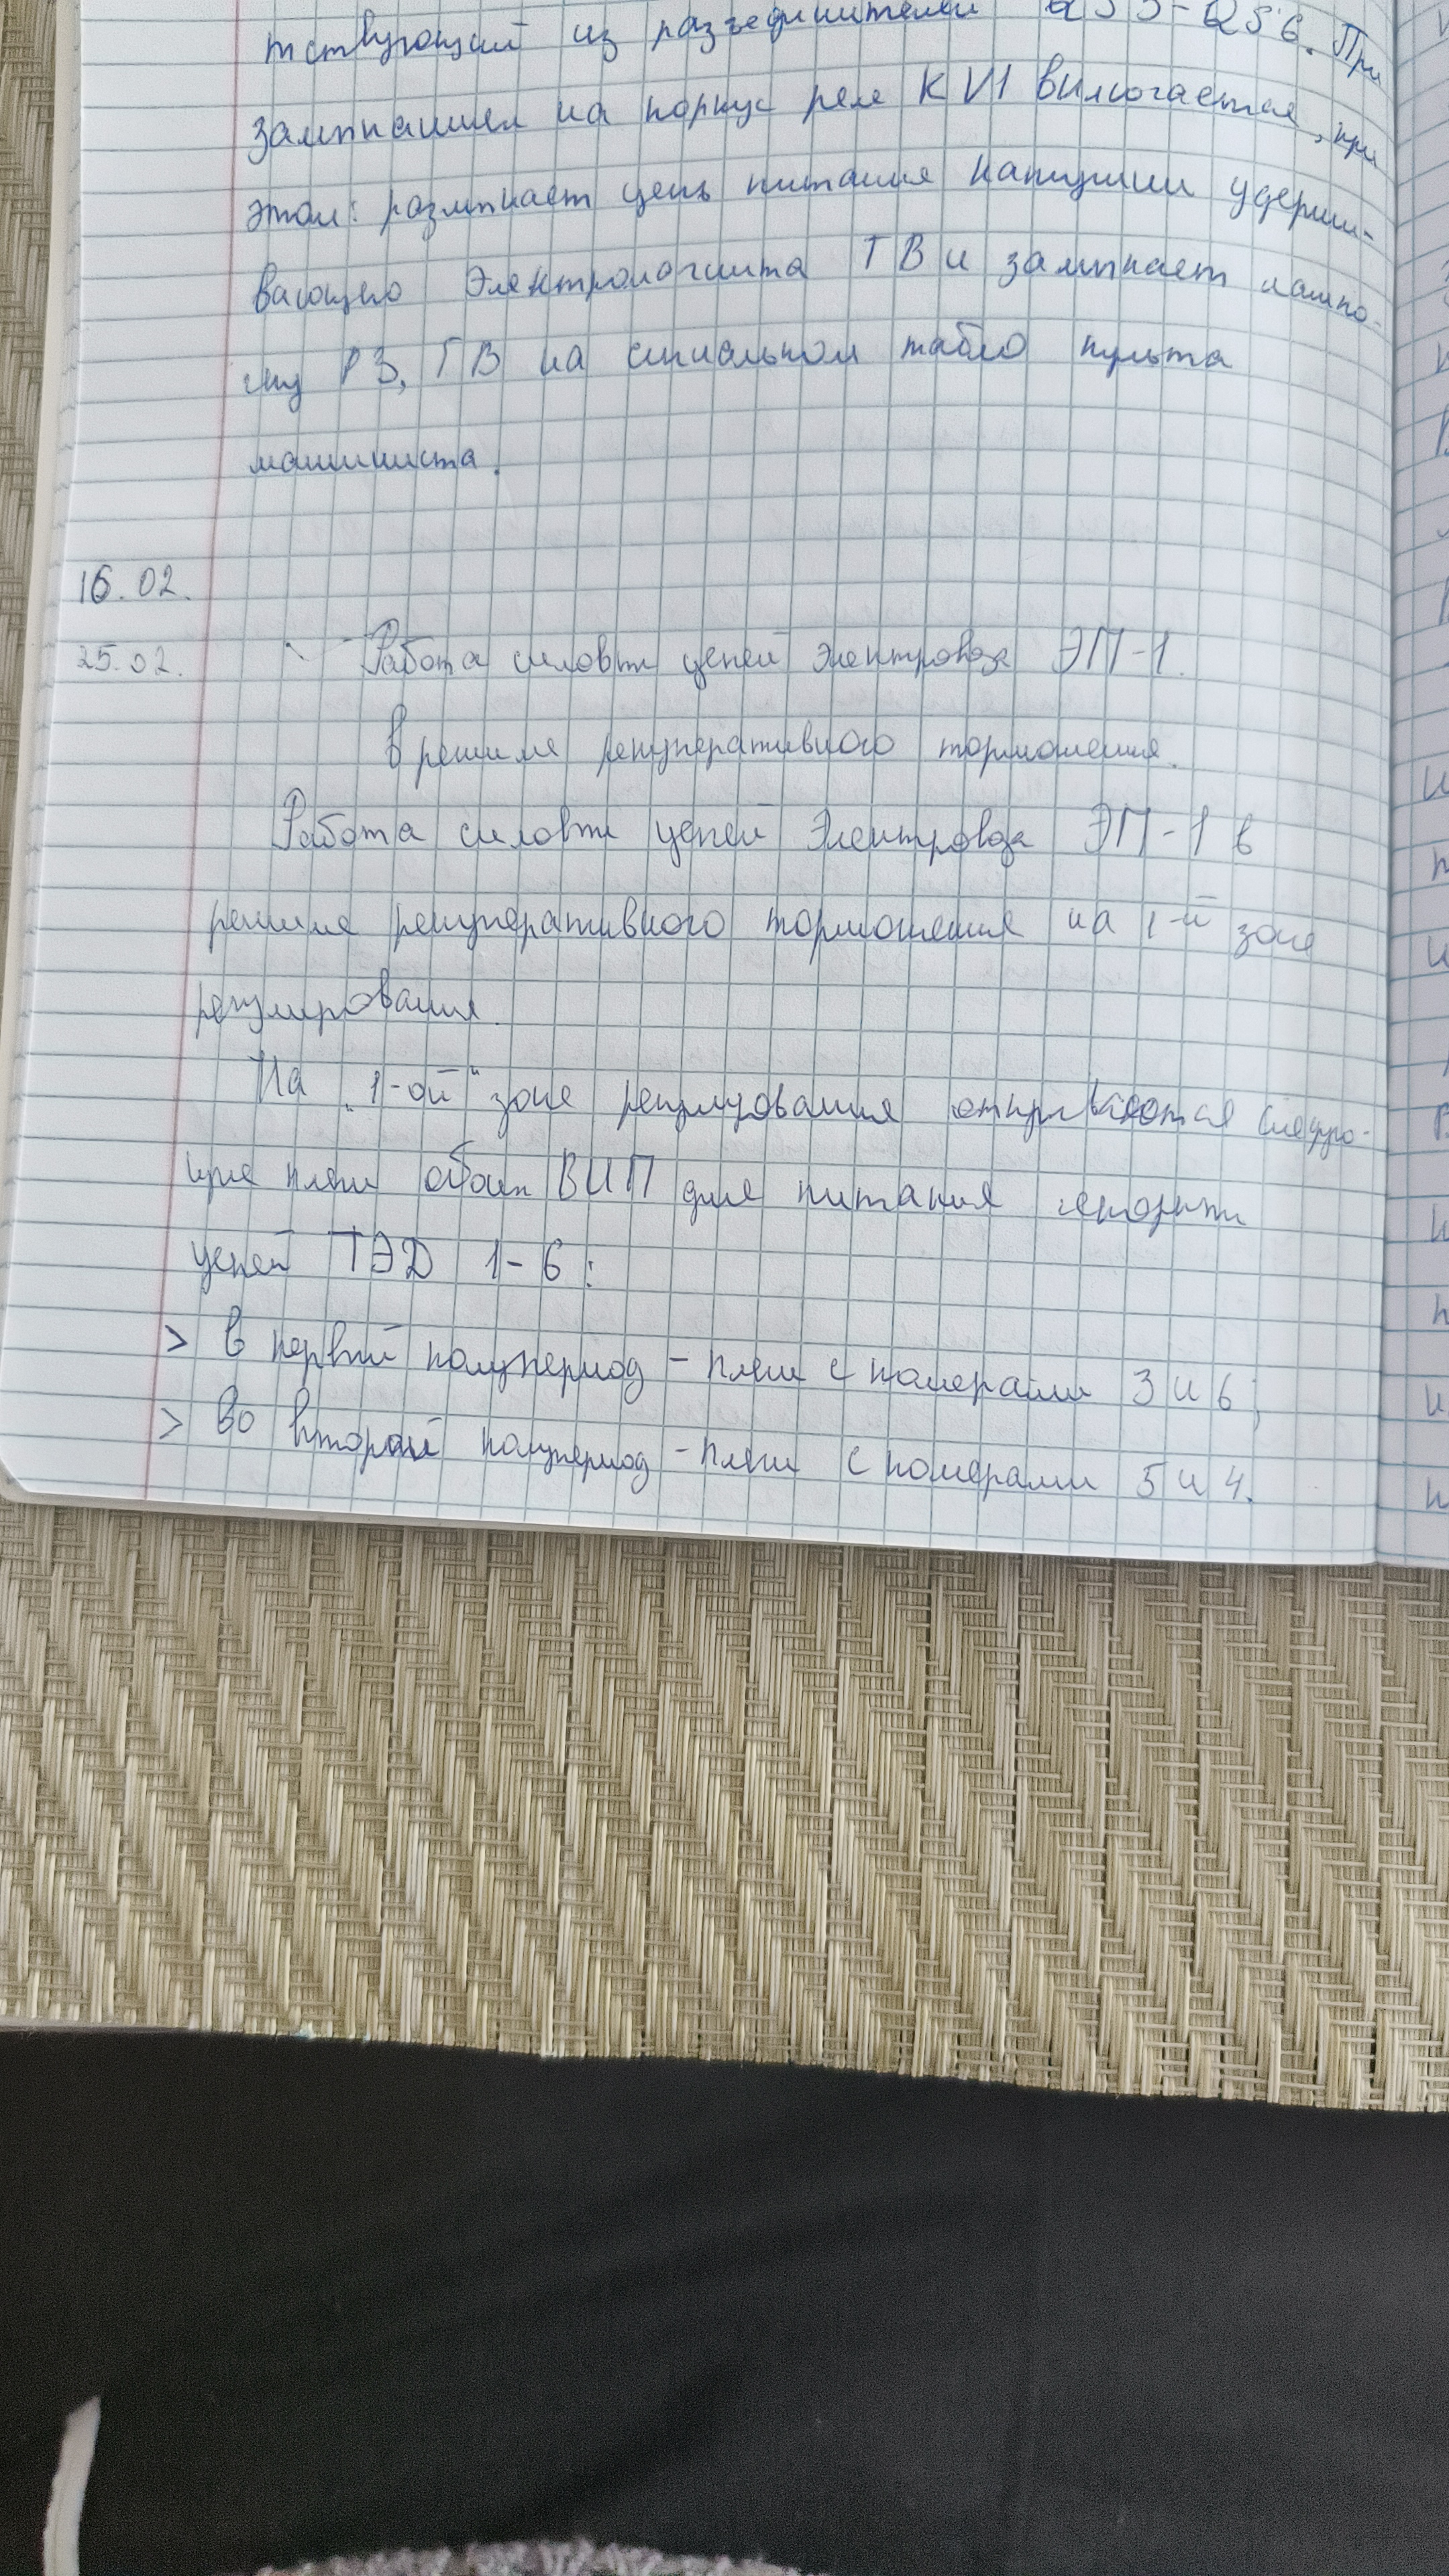 тствующий из разъединителей QS5-QS6. При
замыкании на корпус реле KV1 включается, при
этом: размыкает цепь питания катушки удержи-
вающего электромагнита ГВ и замыкает лампо-
чку РЗ, ГВ на сигнальном табло пульта
машиниста.
16.02.
25.02.
Работа силовых цепей электровоза ЭП-1.
в режиме рекуперативного торможения.
Работа силовых цепей электровоза ЭП-1 в
режиме рекуперативного торможения на 1-й зоне
регулирования.
На "1-ой" зоне регулирования открываются следую-
щие плечи обоих ВИП для питания якорных
цепей ТЭД 1-6:
> в первый полупериод - плечи с номерами 3 и 6;
> во второй полупериод - плечи с номерами 5 и 4.